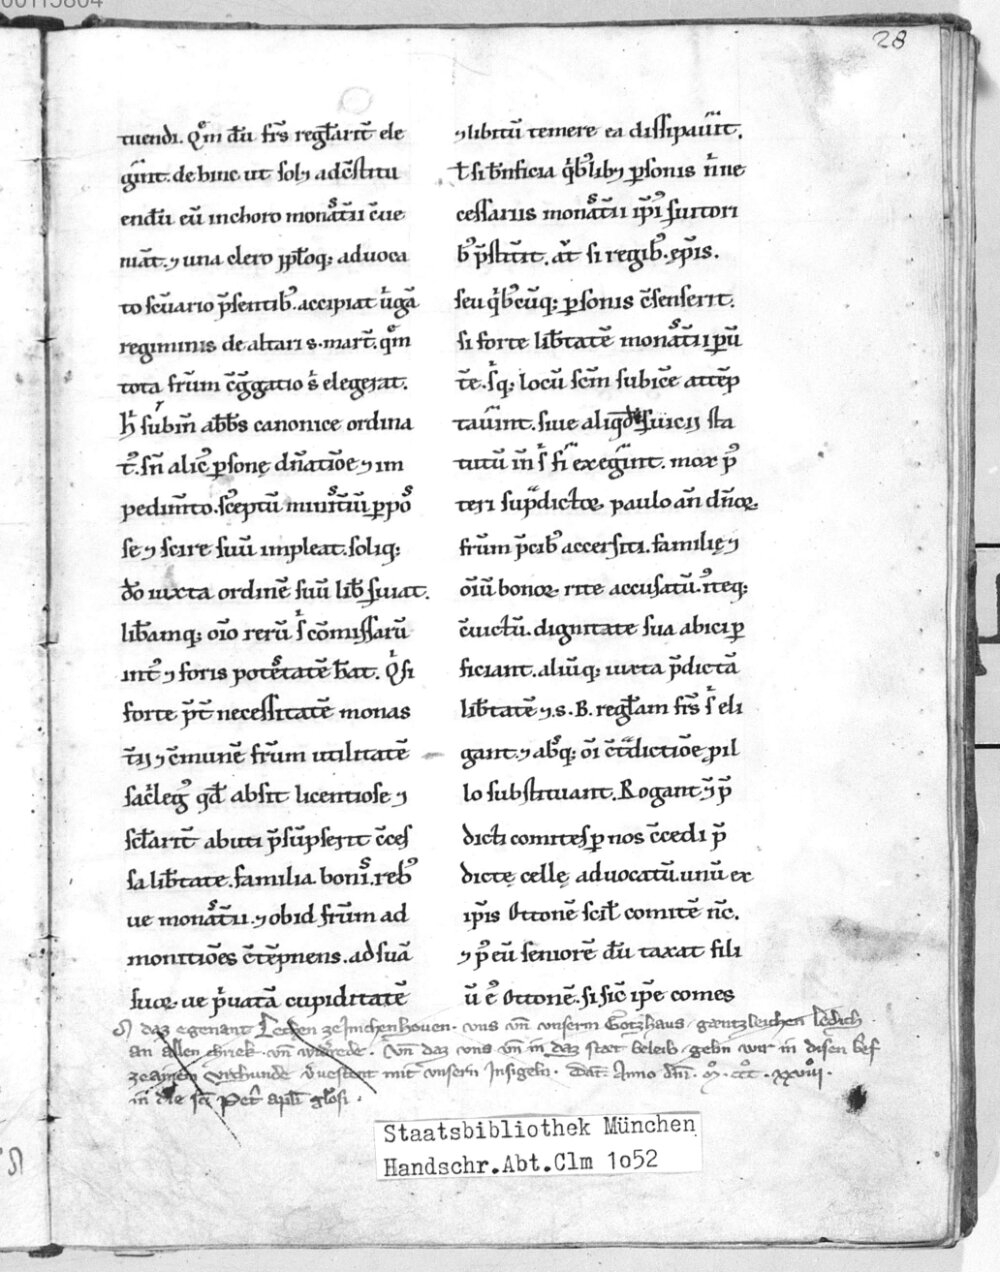 28
tuendi. Qm̅ dn̅i fr̅s regl̅arit̅ ele
gerint. dehinc ut solꝫ adc̅stitu
endu̅ eu̅ inchoro monast̅ii c̅ue
niat̅. ⁊ una clero pp̅loqꝫ advoca
to scu̅ario p̅sentib᾽ accipiat u̅ga̅
regiminis de altari s. mart̅. qm̅
tota fru̅m c̅g̅gatio s̅ elegerat.
h̅ subin̅ abb̅s canonice ordina
t᾽. sn̅ alic᾽ p̱sonę dn̅atio̅e ⁊ im
pedim̅to. sc̅eptu̅ minist̅iu̅ p̱po
se ⁊ scire suu̅ impleat. soliqꝫ
do̅ iuxta ordine̅ suu̅ lib̅ s̅uiat.
lib̅amqꝫ oi̅o reru̅ s̅ co̅missaru̅
int᾽ ⁊ foris potestate̅ h̅at. Q̅ si
forte p̅t̅ necessitate̅ monas
t̅ij ⁊ c̅mune̅ fru̅m utilitate̅
sac̅leg᾽ qd̅ absit licentiose ⁊
scl̅arit̅ abuti p̅su̅pserit c̅ces
sa lib̅tate. familia. bonis. reb᾽
ue monast̅ii. ⁊ obid fru̅m ad
monitio̅es c̅te̅pnens. ad sua̅
suoꝝ ue p̅uata̅ cupiditate̅
⁊ libitu̅ temere ea dissipau̅it.
t̅ si b̅nficia q̅b᾽libꝫ p̱sonis n̅ ne
cessariis monast̅ii ip̅i᾽ suitori
b᾽ p̅stit̅it. at̅ si regib᾽. ep̅is.
seu q̅b᾽cu̅qꝫ p̱sonis c̅senserit.
si forte lib̅tate̅ monast̅ii p̱u̅
te̅. s̅qꝫ locu̅ sc̅m subice̅ atte̅p
tau̅int. siue aliqd̅ s̅uicij sta
tutu̅ in̅ s̅ si̅ exeg̅int. mox p᾽
teri sup̅dictoꝝ paulo an̅ dn̅oꝝ
fru̅m p̅cib᾽ accersiti. familię ⁊
oi̅u̅ bonoꝝ rite accusatu̅. r̅teqꝫ
c̅uictu̅. dignitate sua abici p̱
ficiant. aliu̅qꝫ iuxta p̅dicta̅
lib̅tate̅ ⁊ s. B. regl̅am fr̅s s̅ eli
gant. ⁊ absqꝫ oi̅ c̅t̅dictio̅e p̱ il
lo substituant. Rogant ⁊ p̅
dicti comites p̱ nos c̅cedi p̅
dictę cellę advocatu̅. unu̅ ex
ip̅is Ottone̅ scil̅ comite̅ n̅c.
⁊ p᾽ eu̅ seniore̅ du̅ taxat fili
u̅ e᾽ Ottone̅. si sic̅ ip̅e comes
daz egenant Lechen ze Jnichenhouen. vns vn̅ vnserm Gotzhaus gæntzleichen ledich
an allen chriek. vn̅ widerrede. Vn̅ daz vns vn̅ in daz stæt beleib gebn wir in disen b̅ef
ze ainem vrchunde vestent mit vnsern Insigeln. dat̅ Anno dn̅i. M̊. ccc̊. xxviij.
in die sc̅i Pet̅ ap̅li gl̅osi.
Staatsbibliothek München
Handschr.Abt.Clm 1o52